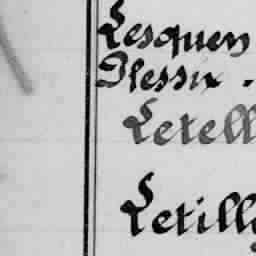 Lesquen
Plessix.
Letell
Letilly